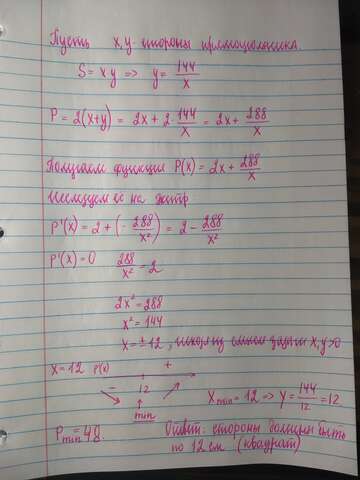 Пусть x, y стороны прямоугольника.
S = xy => y = 144/x
P = 2(x+y) = 2x + 2·144/x = 2x + 288/x
Получаем функцию P(x) = 2x + 288/x
Исследуем её на экстр
P'(x) = 2 + (-288/x²) = 2 - 288/x²
P'(x) = 0 288/x² = 2
2x² = 288
x² = 144
x = ±12, исходя из смысла задачи x, y > 0
x = 12 P(x) - 12 +
min
x min = 12 => y = 144/12 = 12
P min = 48. Ответ: стороны должны быть
по 12 см (квадрат)